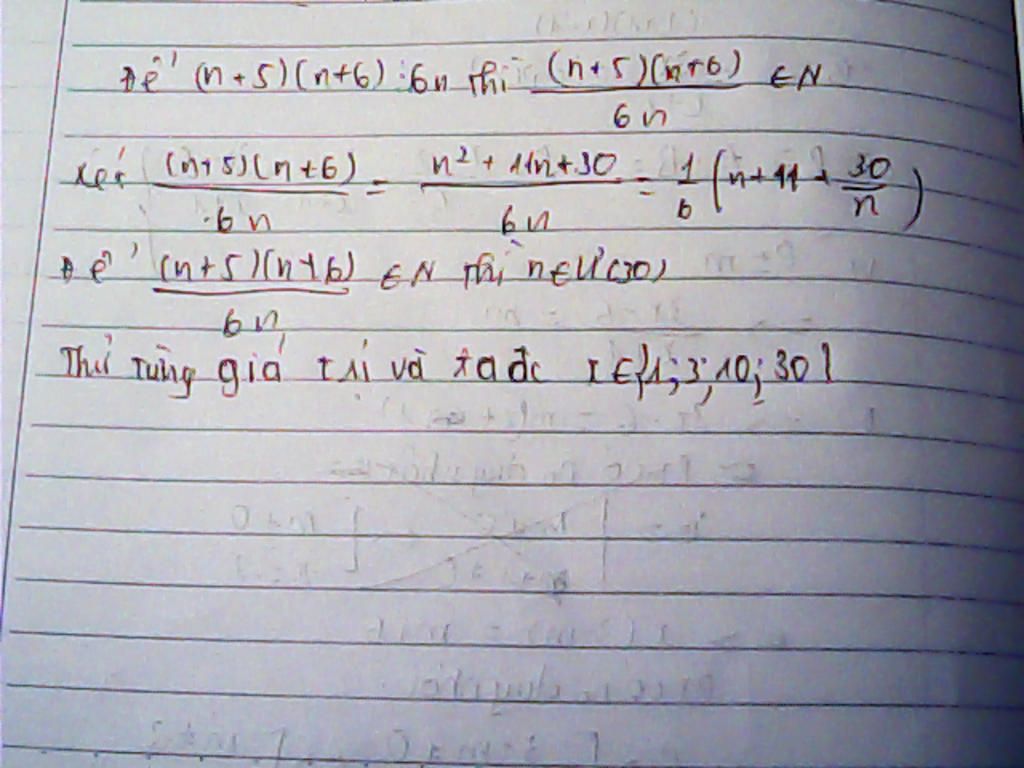 Để (n+5)(n+6) ⋮ 6n thì (n+5)(n+6)/6n ∈ N
Xét (n+5)(n+6)/6n = n² + 11n + 30/6n = 1/6 (n + 11 + 30/n)
Để (n+5)(n+6)/6n ∈ N thì n ∈ Ư(30)
Thử từng giá trị và ta đc x ∈ {1; 3; 10; 30}